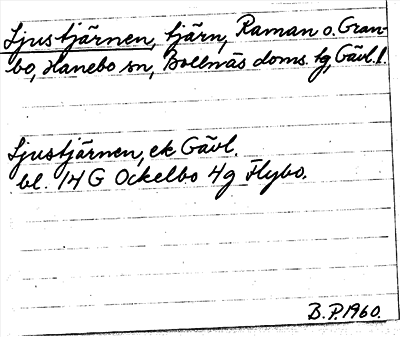 Ljustjärnen, tjärn, Raman o. Gran-
bo, Hanebo sn, Bollnäs doms. tg, Gävl. l.
Ljustjärnen, ek Gävl.
bl. 14 G Ockelbo 4g Flybo.
B. P. 1960.